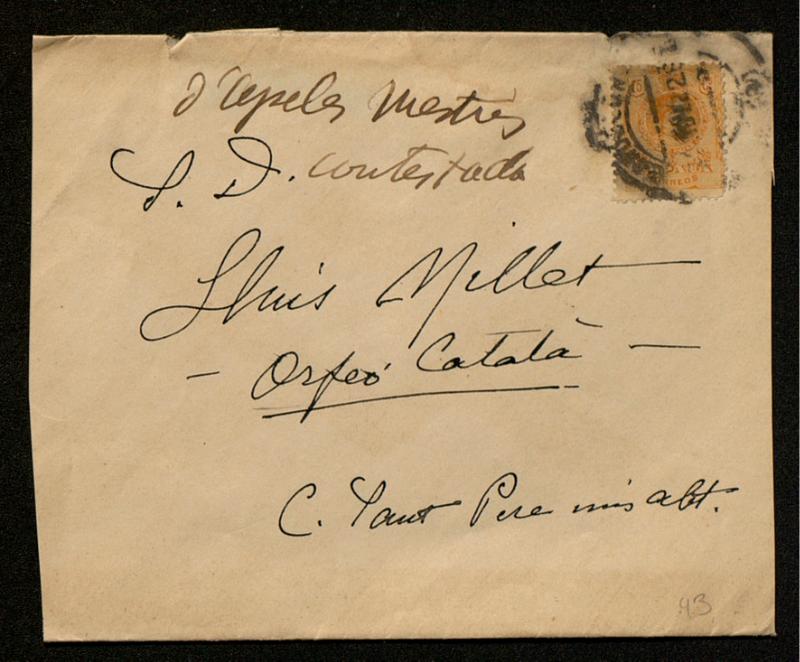 d'Apeles Mestres
S. D. contestada
Lluis Millet
- Orfeó Català -
C. Sant Pere mes alt.
93